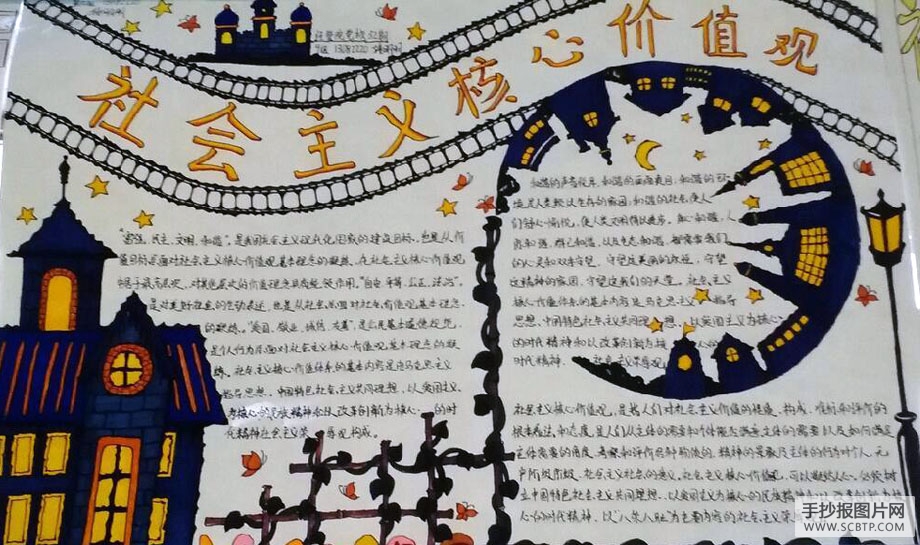 社会主义核心价值观
"富强、民主、文明、和谐",是我国社会主义现代化国家的建设目标,也是从价
值目标层面对社会主义核心价值观基本理念的凝练,在社会主义核心价值观
中居于最高层次,对其他层次的价值理念具有统领作用。"自由、平等、公正、法治",
是对美好社会的生动表述,也是从社会层面对社会主义核心价值观基本理念
的凝练。"爱国、敬业、诚信、友善",是公民基本道德规范,
是从个人行为层面对社会主义核心价值观基本理念的凝
练。社会主义核心价值体系的基本内容是马克思主义
指导思想、中国特色社会主义共同理想、以爱国主义
为核心的民族精神和以改革创新为核心的时
代精神社会主义荣 辱观构成。
和谐的声音悦耳,和谐的画面夺目,和谐的
境是人类赖以生存的家园,和谐的社会使人
们舒心愉悦,使人类文明得以进步。
守望这美丽的
这精神的家园,守望这我们的天堂。社会主义
核心价值体系的基本内容是马克思主义 指导
思想、中国特色社会主义共同理想、以爱国主义为核心
的时代精神和以改革创新为核 心的
时代精神、 社会主义荣辱观。
社会主义核心价值观,是指人们对社会主义价值的性质、构成、标准和评价的
根本看法和态度,是人们从主体的需要和客体能否满足主体的需要以及如何满足
主体需要的角度,考察和评价各种物质的、精神的现象及主体的行为对个人、无
产阶级、社会主义社会的意义。社会主义核心价值观,可以凝结人心,
立中国特色社会主义共同理想,以爱国主义为核心的民族精神
心的时代精神,以"八荣八耻"为主要内容的社会主义荣
手抄报图片网
WWW.SCBTP.COM